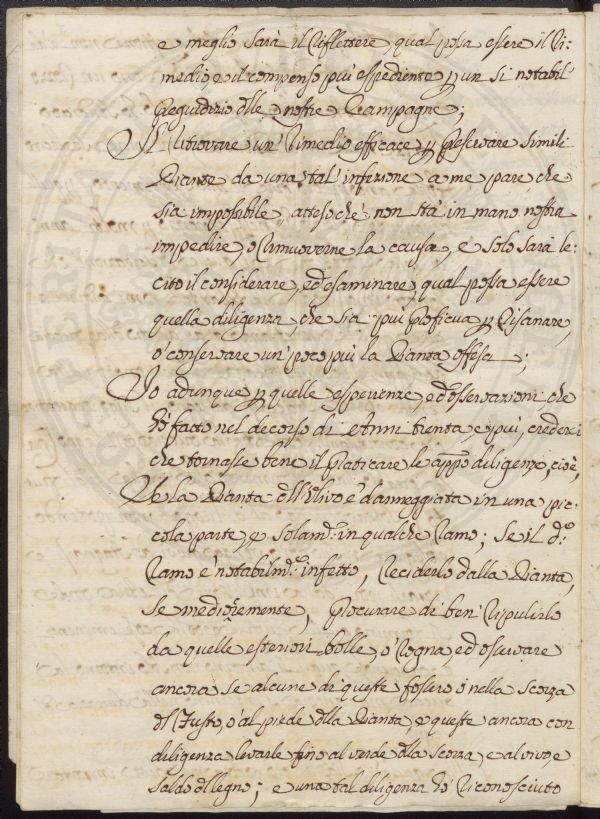 e meglio sarà il riflettere, qual possa essere il ri-
medio, e il compenso più espediente p un si notabil'
Pregiudizio dlle nostre Campagne;
Il ritrovare un' rimedio efficace p preservare simili
Piante da una tal' infezione a me pare, che
sia impossibile, attesoche' non stà in mano nostra
impedire, o rimuoverne la causa, e solo sarà le-
cito il considerare, ed' esaminare, qual possa essere
quella diligenza, che sia più proficua p risanare,
o' conservare un' poco più la Pianta offesa;
Io adunque p quelle esperienze, ed' osservazioni che
hò fatto nel decorso di Anni trenta, e più, crederei
che tornasse bene il praticare le app.e diligenze, cioè,
Se la Pianta dll'Ulivo è danneggiata in una pic-
cola parte, e solam.e in qualche ramo; se il d.o
ramo è notabilm.e infetto, reciderlo dalla Pianta,
se mediocremente, procurare di ben' ripulirlo
da quelle esteriori bolle, o' rogna, ed' osservare
ancora se alcune di queste fossero o nella scorza
dl fusto, o' al piede dlla Pianta, e queste ancora con
diligenza levarle fino al verde dlla scorza, e al vivo e
saldo dl legno; e una tal diligenza hò riconosciuto